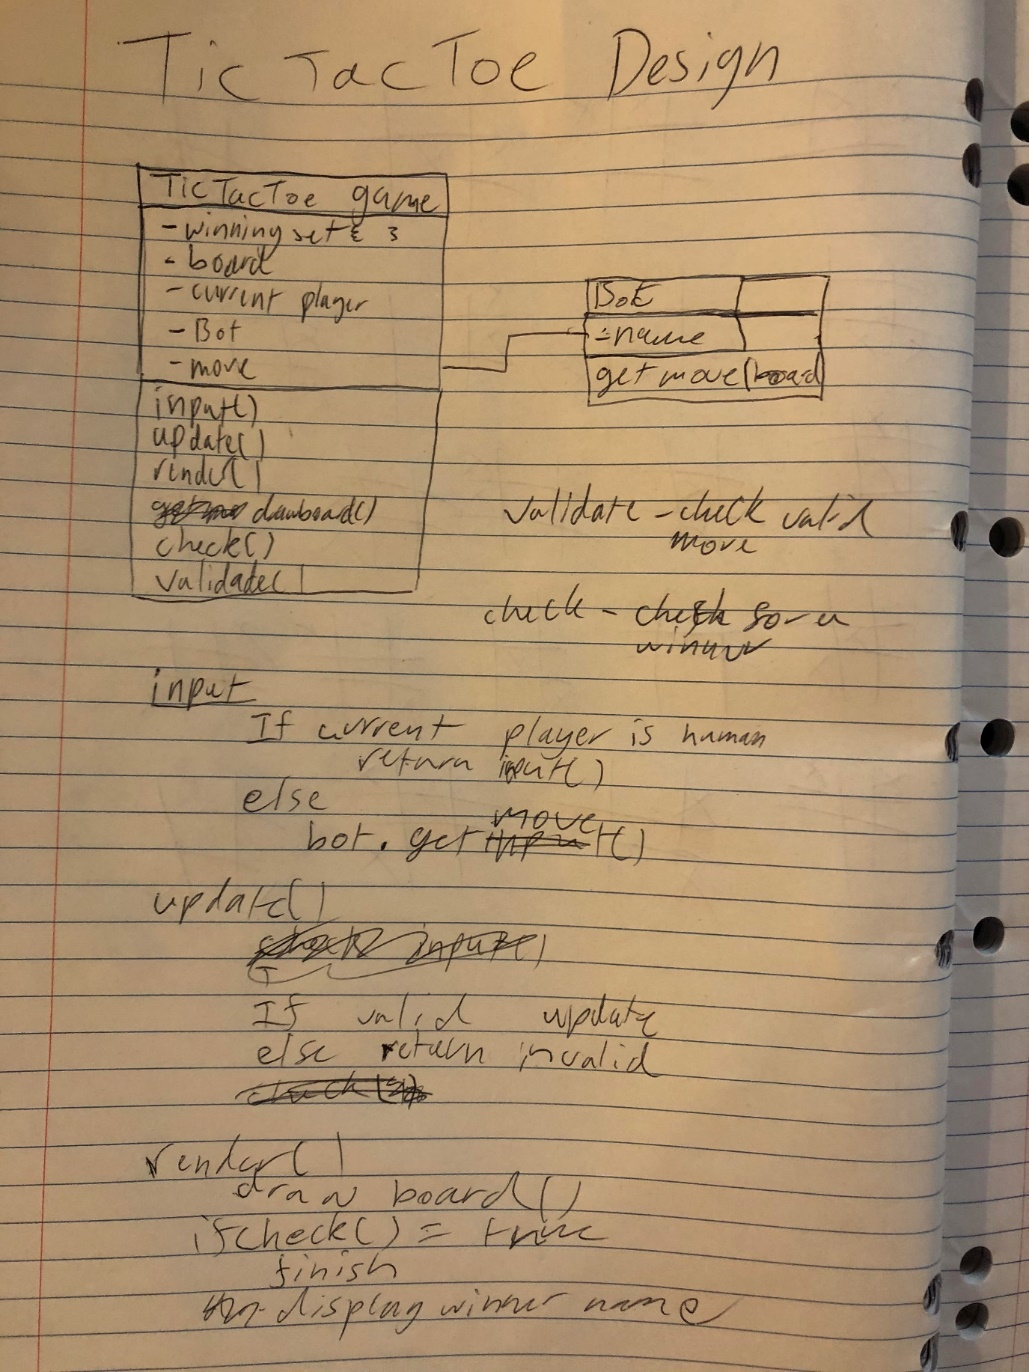 TicTacToe Design
TicTacToe game
- winning set { }
- board
- current player
- Bot
- move
input()
update()
render()
drawboard()
check()
validate()
Bot
- name
get move(board
validate - check valid
move
check - check for a
winner
input
If current player is human
return input()
else
move
bot. get ()
update()
If valid update
else return invalid
render()
draw board()
if check() = true
finish
display winner name